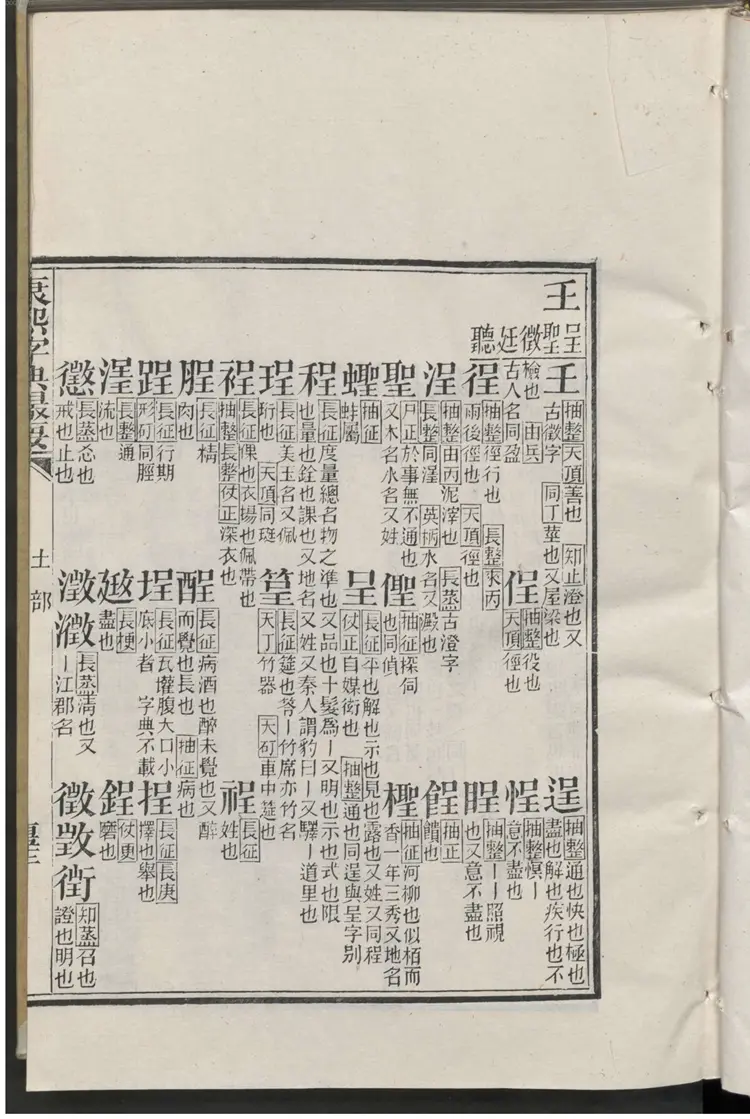 𡈼
呈聖徵廷聽
𡈼 抽整天頂善也 知止澄也又古徵字 同丁莖也又屋梁也
逞 抽整通也快也極也盡也解也疾行也不
檢也 由兵古人名同盈
侱 抽整役也天頂徑也
悜 抽整慏丨意不盡也
徎 抽整徑行也 長整來丙雨後徑也 天頂徑也
睲 抽整丨丨照視也又意不盡也
浧 抽整由丙泥滓也 長蒸古澄字長整同澤 英柄水名又澱也
餳 抽正饋也
聖 尸正於事無不通也又木名水名又姓
𠊩 抽征探伺也同偵
檉 抽征河柳也似栢而香一年三秀又地名
蟶 抽征蚌屬
呈 長征平也解也示也見也露也又姓又同程仗正自媒衒也 抽整通也同逞與呈字別
程 長征度量總名物之準也又品也十髮爲丨又明也示也式也限也量也銓也課也又地名又姓又秦人謂豹曰丨又驛丨道里也
珵 長征美玉名又佩珩也 天頂同珽
筳 長征筵也䇦丨竹席亦竹名天丁竹器 大矴車中筵也
裎 長征倮也衣裼也佩帶也抽整長整仗正深衣也
䄇 長征姓也
脭 長征精肉也
酲 長征病酒也醉未覺也又醉而覺也長也 抽征病也
踁 長征行期形矴同脛
埕 長征瓦壜腹大口小底小者 字典不載
挰 長征長庚擇也舉也
澤 長整通流也
𢻙 長梗盡也
鋥 仗更磨也
懲 長蒸忿也戒也止也
澂瀓 長蒸淸也又丨江郡名
徵𢾷𧗶 知蒸召也證也明也
康熙字典撮要
土部